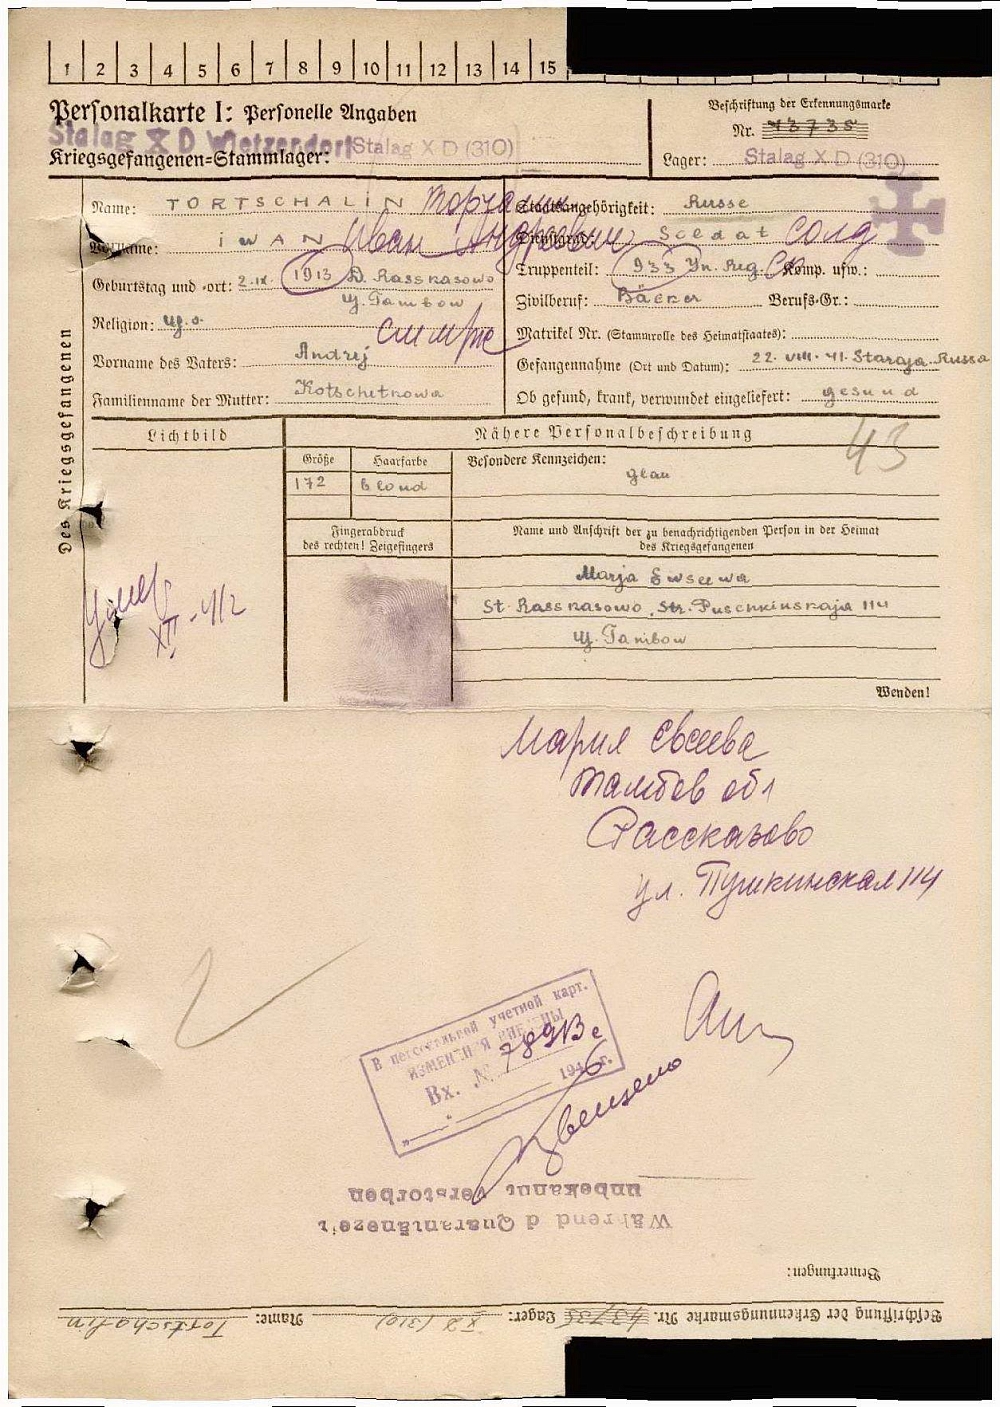 1 2 3 4 5 6 7 8 9 10 11 12 13 14 15
Personalkarte I: Personelle Angaben
Stalag X D Wietzendorf
Kriegsgefangenen-Stammlager: Stalag X D (310)
Beschriftung der Erkennungsmarke
Nr. 43735
Lager: Stalag X D (310)
Des Kriegsgefangenen
Name: TORTSCHALIN
Vorname: IWAN Иван Андреевич
Geburtstag und -ort: 2.IX. 1913 D. Rasskasowo
G. Tambow
Religion:
Vorname des Vaters: Andrej
Familienname der Mutter: Kotschetkowa
Staatsangehörigkeit: Russe
Dienstgrad: Soldat солд
Truppenteil: 933 Jn. Reg. Komp. usw.:
Zivilberuf: Bäcker Berufs-Gr.:
Matrikel Nr. (Stammrolle des Heimatstaates):
Gefangennahme (Ort und Datum): 22. VIII. 41. Staraja-Russa
Ob gesund, krank, verwundet eingeliefert: gesund
Lichtbild
Nähere Personalbeschreibung
43
Größe
Haarfarbe
Besondere Kennzeichen:
172
blond
Fingerabdruck
des rechten! Zeigefingers
Name und Anschrift der zu benachrichtigenden Person in der Heimat
des Kriegsgefangenen
Marja Ewseewa
St. Rasskasowo, Str. Puschkinskaja 114
G. Tambow
Wenden!
Мария Евсеева
Тамбов обл
Рассказово
ул. Пушкинская 114
В персональной учетной карт.
ИЗМЕНЕНИЯ ВНЕСЕНЫ
Вх. №
1946 г.
Извещено
Während d Quarantänezeit
unbekannt verstorben
Bemerkungen:
Beschriftung der Erkennungsmarke Nr. 43735 Lager: X D (310) Name: Tortschalin